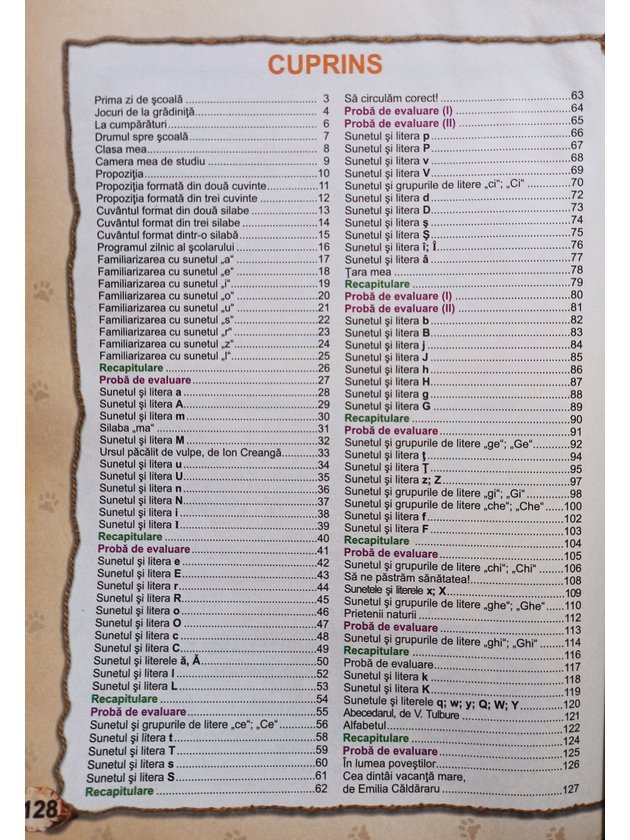 CUPRINS
Prima zi de şcoală ........ 3
Jocuri de la grădiniţă ........ 4
La cumpărături ........ 6
Drumul spre şcoală ........ 7
Clasa mea ........ 8
Camera mea de studiu ........ 9
Propoziţia ........ 10
Propoziţia formată din două cuvinte ........ 11
Propoziţia formată din trei cuvinte ........ 12
Cuvântul format din două silabe ........ 13
Cuvântul format din trei silabe ........ 14
Cuvântul format dintr-o silabă ........ 15
Programul zilnic al şcolarului ........ 16
Familiarizarea cu sunetul „a“ ........ 17
Familiarizarea cu sunetul „e“ ........ 18
Familiarizarea cu sunetul „i“ ........ 19
Familiarizarea cu sunetul „o“ ........ 20
Familiarizarea cu sunetul „u“ ........ 21
Familiarizarea cu sunetul „s“ ........ 22
Familiarizarea cu sunetul „r“ ........ 23
Familiarizarea cu sunetul „z“ ........ 24
Familiarizarea cu sunetul „l“ ........ 25
Recapitulare ........ 26
Probă de evaluare ........ 27
Sunetul şi litera a ........ 28
Sunetul şi litera A ........ 29
Sunetul şi litera m ........ 30
Silaba „ma“ ........ 31
Sunetul şi litera M ........ 32
Ursul păcălit de vulpe, de Ion Creangă ........ 33
Sunetul şi litera u ........ 34
Sunetul şi litera U ........ 35
Sunetul şi litera n ........ 36
Sunetul şi litera N ........ 37
Sunetul şi litera i ........ 38
Sunetul şi litera I ........ 39
Recapitulare ........ 40
Probă de evaluare ........ 41
Sunetul şi litera e ........ 42
Sunetul şi litera E ........ 43
Sunetul şi litera r ........ 44
Sunetul şi litera R ........ 45
Sunetul şi litera o ........ 46
Sunetul şi litera O ........ 47
Sunetul şi litera c ........ 48
Sunetul şi litera C ........ 49
Sunetul şi literele ă, Ă ........ 50
Sunetul şi litera l ........ 52
Sunetul şi litera L ........ 53
Recapitulare ........ 54
Probă de evaluare ........ 55
Sunetul şi grupurile de litere „ce“; „Ce“ ........ 56
Sunetul şi litera t ........ 58
Sunetul şi litera T ........ 59
Sunetul şi litera s ........ 60
Sunetul şi litera S ........ 61
Recapitulare ........ 62
Să circulăm corect! ........ 63
Probă de evaluare (I) ........ 64
Probă de evaluare (II) ........ 65
Sunetul şi litera p ........ 66
Sunetul şi litera P ........ 67
Sunetul şi litera v ........ 68
Sunetul şi litera V ........ 69
Sunetul şi grupurile de litere „ci“; „Ci“ ........ 70
Sunetul şi litera d ........ 72
Sunetul şi litera D ........ 73
Sunetul şi litera ş ........ 74
Sunetul şi litera Ş ........ 75
Sunetul şi litera î; Î ........ 76
Sunetul şi litera â ........ 77
Ţara mea ........ 78
Recapitulare ........ 79
Probă de evaluare (I) ........ 80
Probă de evaluare (II) ........ 81
Sunetul şi litera b ........ 82
Sunetul şi litera B ........ 83
Sunetul şi litera j ........ 84
Sunetul şi litera J ........ 85
Sunetul şi litera h ........ 86
Sunetul şi litera H ........ 87
Sunetul şi litera g ........ 88
Sunetul şi litera G ........ 89
Recapitulare ........ 90
Probă de evaluare ........ 91
Sunetul şi grupurile de litere „ge“; „Ge“ ........ 92
Sunetul şi litera ţ ........ 94
Sunetul şi litera Ţ ........ 95
Sunetul şi litera z; Z ........ 97
Sunetul şi grupurile de litere „gi“; „Gi“ ........ 98
Sunetul şi grupurile de litere „che“; „Che“ ........ 100
Sunetul şi litera f ........ 102
Sunetul şi litera F ........ 103
Recapitulare ........ 104
Probă de evaluare ........ 105
Sunetul şi grupurile de litere „chi“; „Chi“ ........ 106
Să ne păstrăm sănătatea! ........ 108
Sunetele şi literele x; X ........ 109
Sunetul şi grupurile de litere „ghe“; „Ghe“ ........ 110
Prietenii naturii ........ 112
Probă de evaluare ........ 113
Sunetul şi grupurile de litere „ghi“; „Ghi“ ........ 114
Recapitulare ........ 116
Probă de evaluare ........ 117
Sunetul şi litera k ........ 118
Sunetul şi litera K ........ 119
Sunetule şi literele q; w; y; Q; W; Y ........ 120
Abecedarul, de V. Tulbure ........ 121
Alfabetul ........ 122
Recapitulare ........ 124
Probă de evaluare ........ 125
În lumea poveştilor ........ 126
Cea dintâi vacanţă mare,
de Emilia Căldăraru ........ 127
128